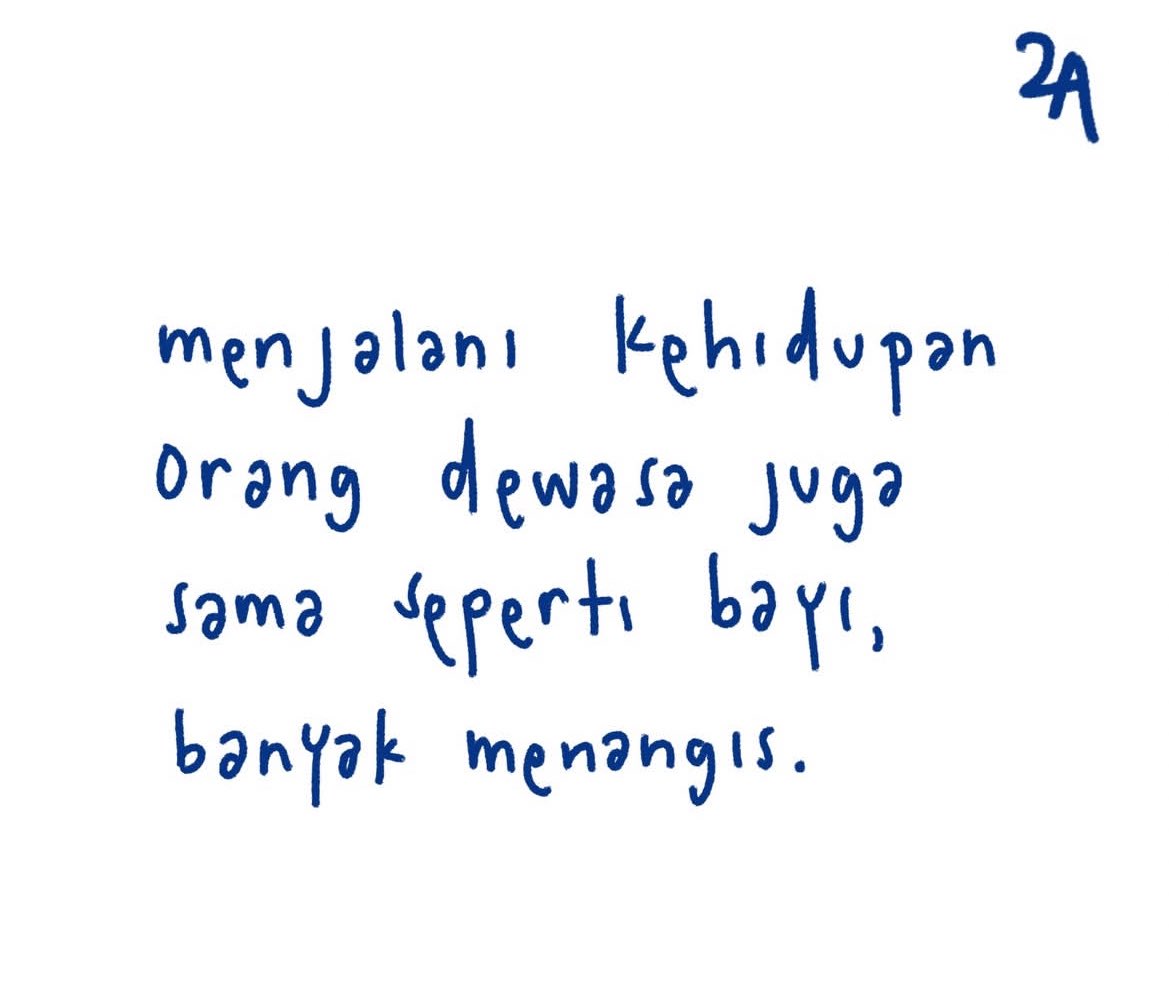 2A
menjalani kehidupan
orang dewasa juga
sama seperti bayi,
banyak menangis.